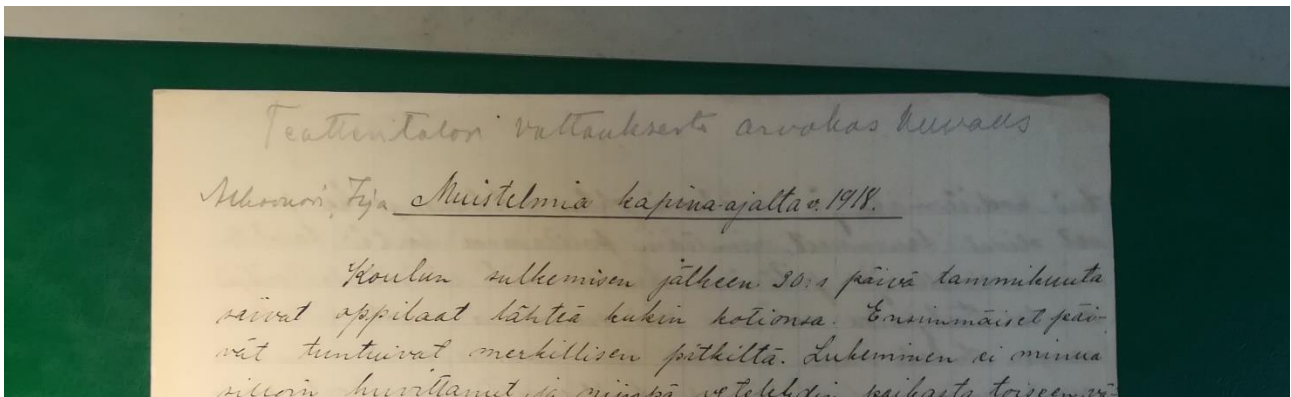 Teatteritalon valtauksesta arvokas kuvaus
Irja Muistelmia kapina-ajalta v. 1918.
Koulun sulkemisen jälkeen 30:s päivä tammikuuta
saivat oppilaat lähteä kukin kotionsa. Ensimmäiset päi-
vät tuntuivat merkillisen pitkiltä. Lukeminen ei minua
silloin huvittanut ja niinpä vetelehdin paikasta toiseen